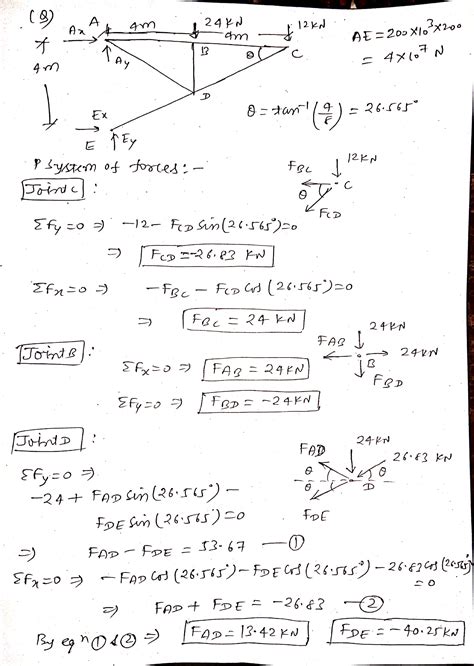 (Q)
Ax A 4m 24KN 4m 12KN
4m
Ay B θ C
D
Ex
E Ey
AE = 200×10³×200
= 4×10⁷ N
θ = tan⁻¹(4/8) = 26.565°
P System of forces:-
Joint C :
FBC 12KN
θ C
FCD
Σfy=0 ⇒ -12 - FCD Sin(26.565°)=0
⇒ FCD = -26.83 KN
Σfx=0 ⇒ -FBC - FCD Cos(26.565°)=0
⇒ FBC = 24 KN
Joint B :
FAB 24KN
B 24KN
FBD
Σfx=0 ⇒ FAB = 24KN
Σfy=0 ⇒ FBD = -24KN
Joint D :
FAD 24KN 26.83 KN
θ θ
θ D
FDE
Σfy=0 ⇒
-24 + FAD Sin(26.565°) -
FDE Sin(26.565°)=0
⇒ FAD - FDE = 53.67 — ①
Σfx=0 ⇒ -FAD Cos(26.565°) - FDE Cos(26.565°) - 26.83 Cos(26.565°)
=0
⇒ FAD + FDE = -26.83 — ②
By eqn ① & ② ⇒ FAD = 13.42 KN FDE = -40.25KN